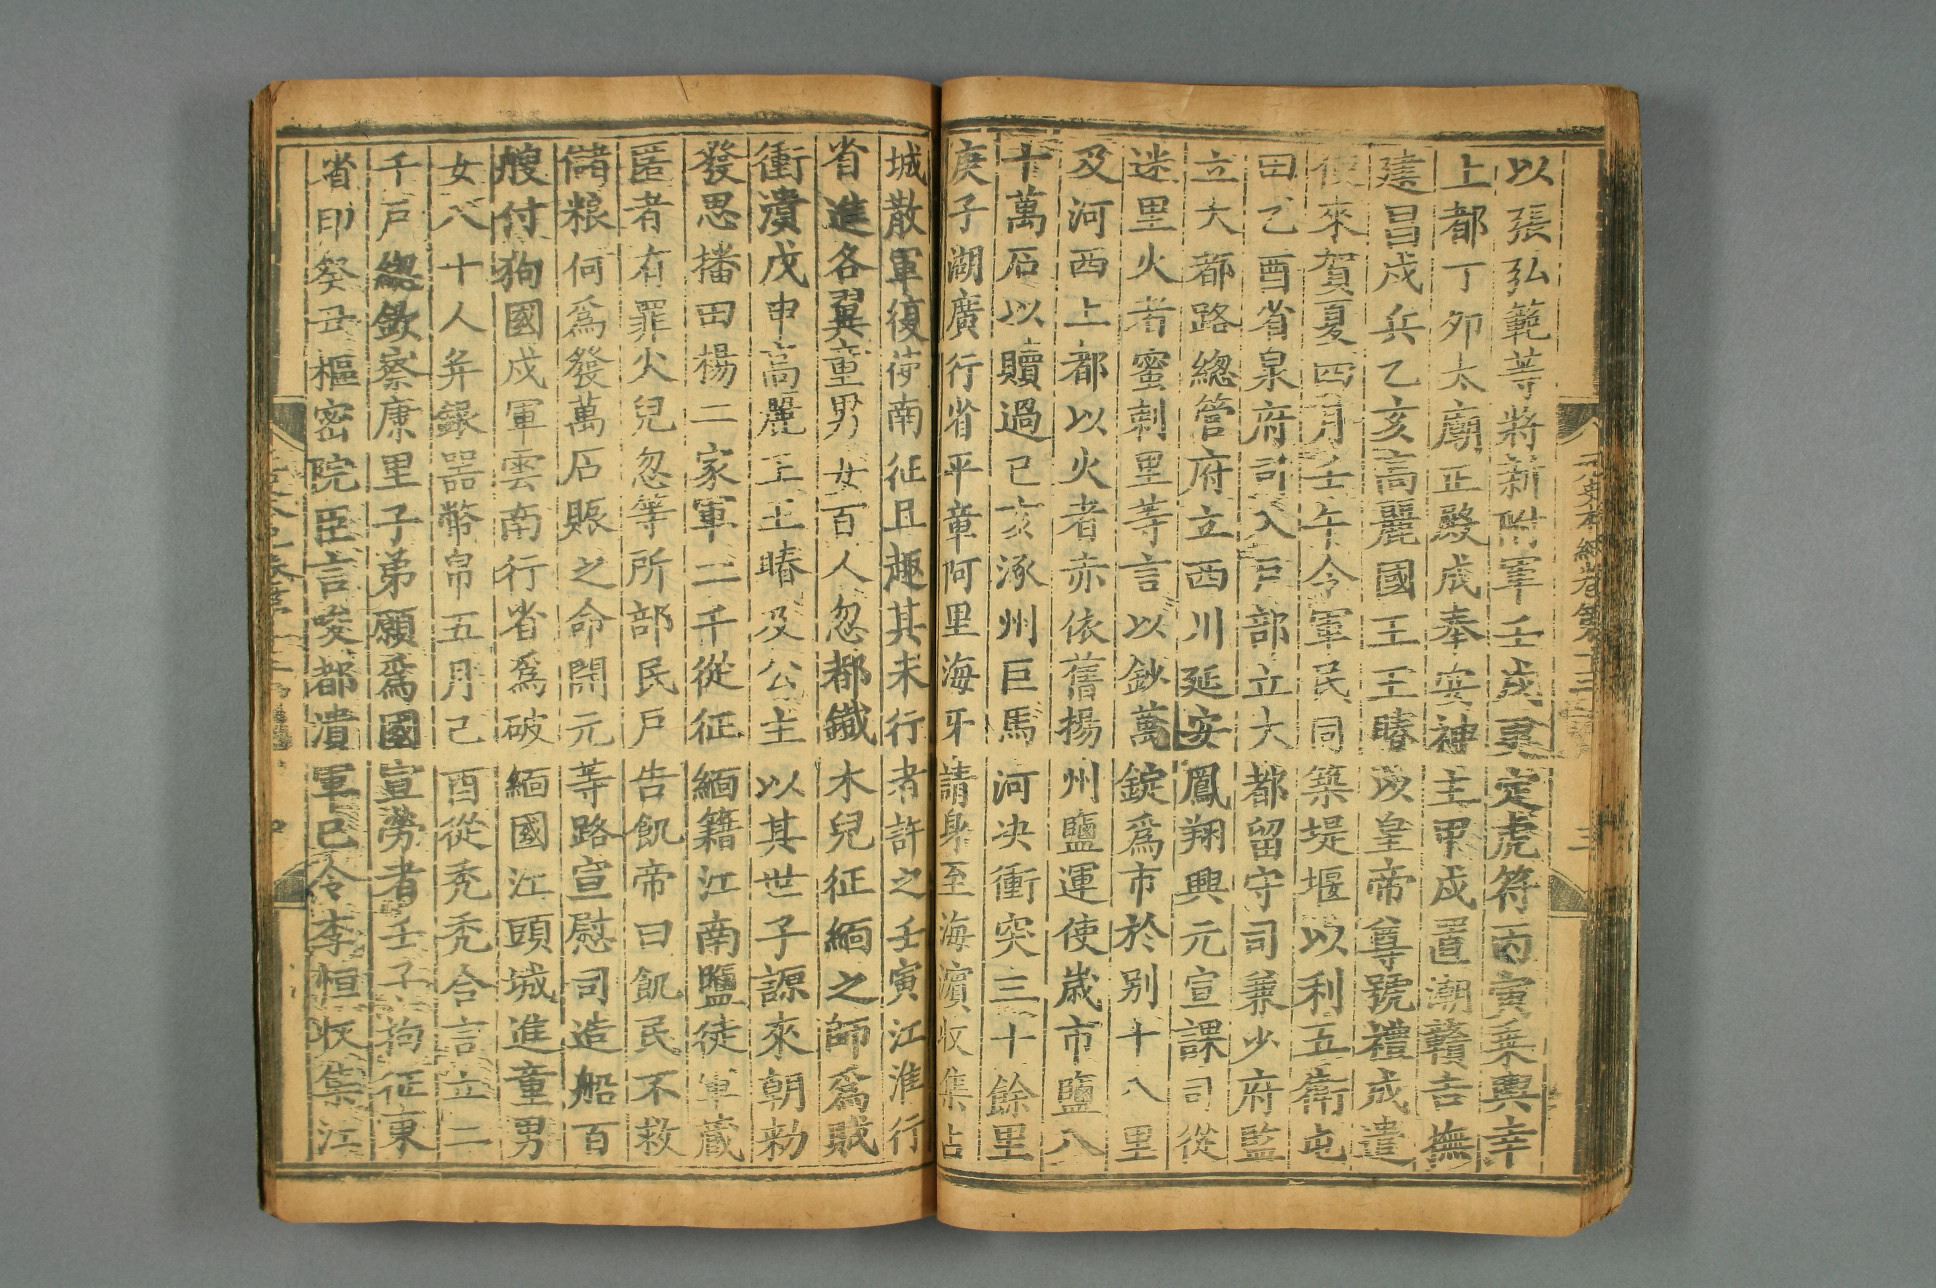 以張弘範等將新附軍壬戌夏定虎符丙寅乗輿幸
上都丁夘太廟正殿成奉安神主甲戍置潮贑吉撫
建昌戍兵乙亥高麗國王王賰以皇帝尊號禮成遣
使來賀夏四月壬午令軍民同築堤堰以利五衛屯
田乙酉省泉府司入户部立大都留守司兼少府監
立大都路緫管府立西川延安鳳翔興元宣課司從
迷里火者蜜剌里等言以鈔萬錠爲市於别十八里
及河西上都以火者赤依舊揚州鹽運使歳市鹽八
十萬石以贖過己亥涿州巨馬河决衝突三十餘里
庚子湖廣行省平章阿里海牙請身至海濵收集占
城散軍復使南征且趣其未行者許之壬寅江淮行
省進各翼童男女百人忽都鐵木兒征緬之師爲賊
衝潰戊申高麗王王賰及公主以其世子謜來朝勑
發思播田楊二家軍二千從征緬籍江南鹽徒軍藏
匿者有罪火兒忽等所部民戸告飢帝曰飢民不救
儲粮何爲發萬石賑之命開元等路宣慰司造船百
艘付狗國戍軍雲南行省爲破緬國江頭城進童男
女八十人并銀器幣帛五月己酉從禿禿合言立二
千戸緫欽察康里子弟願爲國宣勞者壬子拘征東
省印癸丑樞密院臣言唆都潰軍已令李恒收集江
元史本紀卷第十三
三